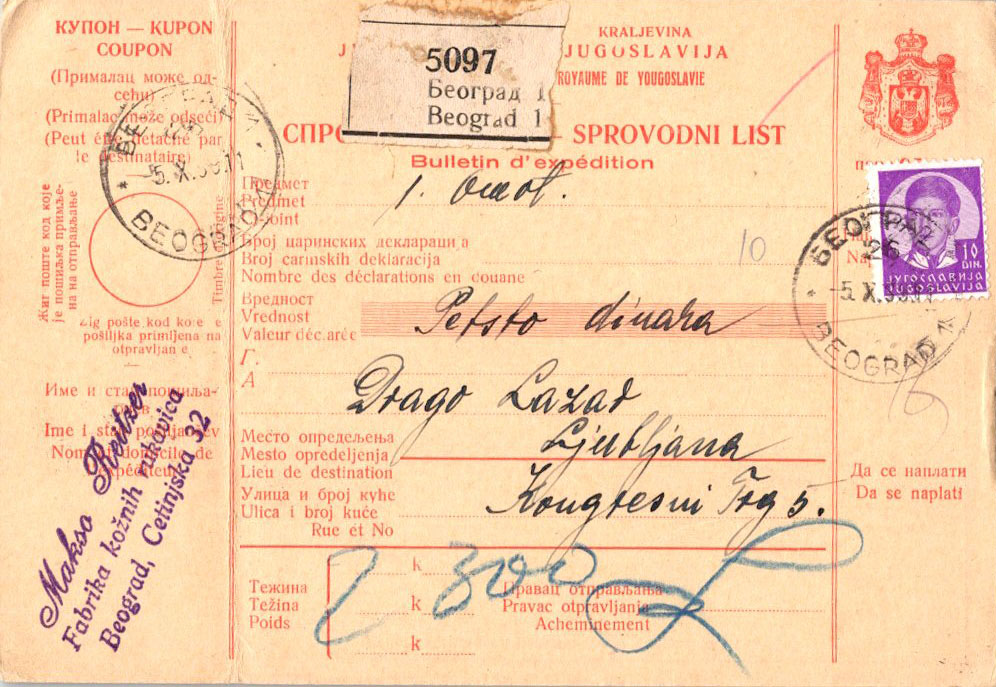 КУПОН — KUPON
COUPON
(Прималац може од-
сећи)
(Primalac može odseći)
(Peut être detaché par
le destinataire)
БЕОГРАД
-5.X.
BEOGRAD 1
Жиг поште код које
је пошиљка примље-
на на отправљање
Timbre d'origine
Žig pošte kod koje e
pošiljka primljena na
otpravljan e
Име и стан пошиља-
Ime i stan pošiljaočev
Nom et domicile de
Makso Reitzer
Fabrika kožnih rukavica
Beograd, Cetinjska 32
5097
Београд 1
Beograd 1
KRALJEVINA
JUGOSLAVIJA
ROYAUME DE YOUGOSLAVIE
СПРО — SPROVODNI LIST
Bulletin d'expédition
Предмет
Predmet
O-joint
1. omot.
Број царинских декларациј а
Broj carinskih deklaracija
Nombre des déclarations en douane
10
Вредност
Vrednost
Valeur déc.arée
Petsto dinara
Г.
А
Drago Lazar
Место опредељења
Mesto opredeljenja
Lieu de destination
Ljubljana
Улица и број куће
Ulica i broj kuće
Rue et No
Kongresni Trg 5.
Тежина
Težina
Poids
k
k
k
2 300
Правац отправљања
Pravac otpravljanja
Acheminement
10
DIN.
ЈУГОСЛАВИЈА
JUGOSLAVIJA
БЕОГРАД
26
-5.X.
BEOGRAD 1
Да се наплати
Da se naplati